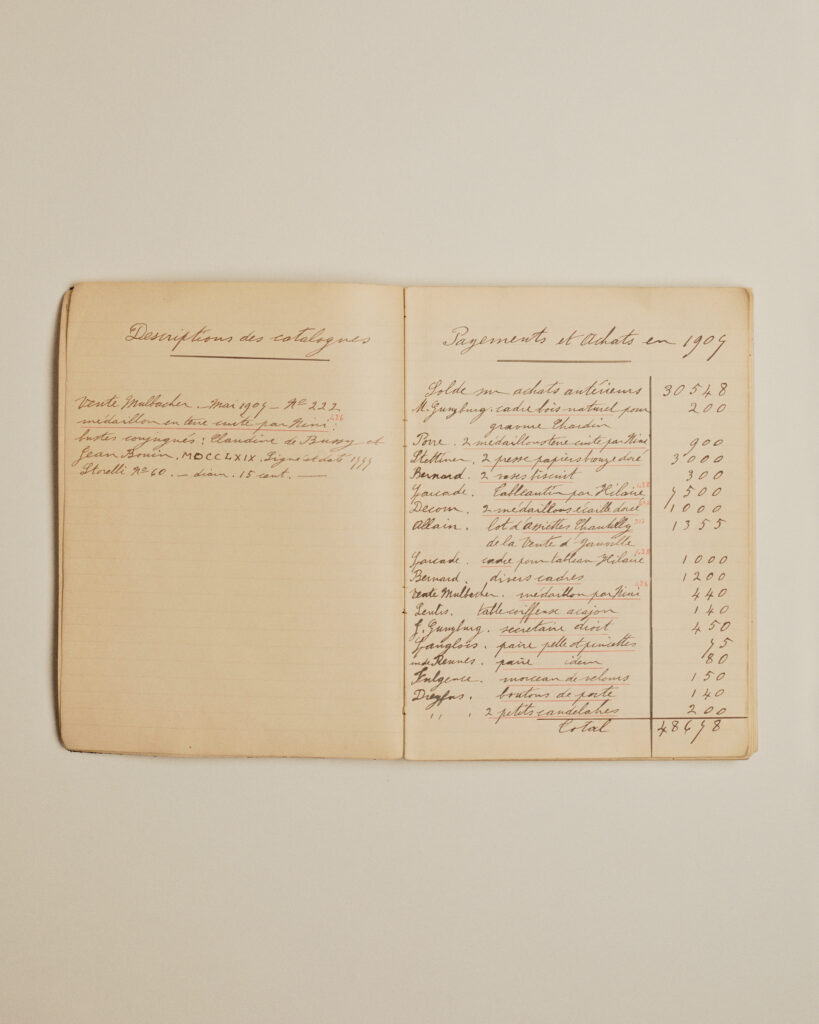 Descriptions des catalogues
Vente Mulbacher. Mai 1907 – No 222
médaillon en terre cuite par Nini :
bustes conjugués : Claudine de Bussy et
Jean Bouin. MDCCLXIX. Signé et daté
Storelli No 60. – diam. 15 cent. —
Payements et Achats en 1907
Solde sur achats antérieurs 30548
M. Gunzburg. cadre bois naturel pour 200
gravure Chardin
Porre. 2 médaillons terre cuite par Nini 900
Stettiner. 2 presse papiers bronze doré 3000
Bernard. 2 vases biscuit 300
Garcade. tableautin par Hilaire 7500
Decour. 2 médaillons écaille dorée 1000
Allain. lot d'assiettes Chantilly 1355
de la Vente d'Yanville
Garcade. cadre pour tableau Hilaire 1000
Bernard. divers cadres 1200
Vente Mulbacher. médaillon par Nini 440
table coiffeuse acajou 140
G. Gunzburg. secrétaire droit 450
Langlois. paire pelle et pincettes 75
md de Rennes. paire idem 80
Fulgence. morceau de velours 150
Dreyfus. boutons de porte 140
" . 2 petits candelabres 200
Total 48678